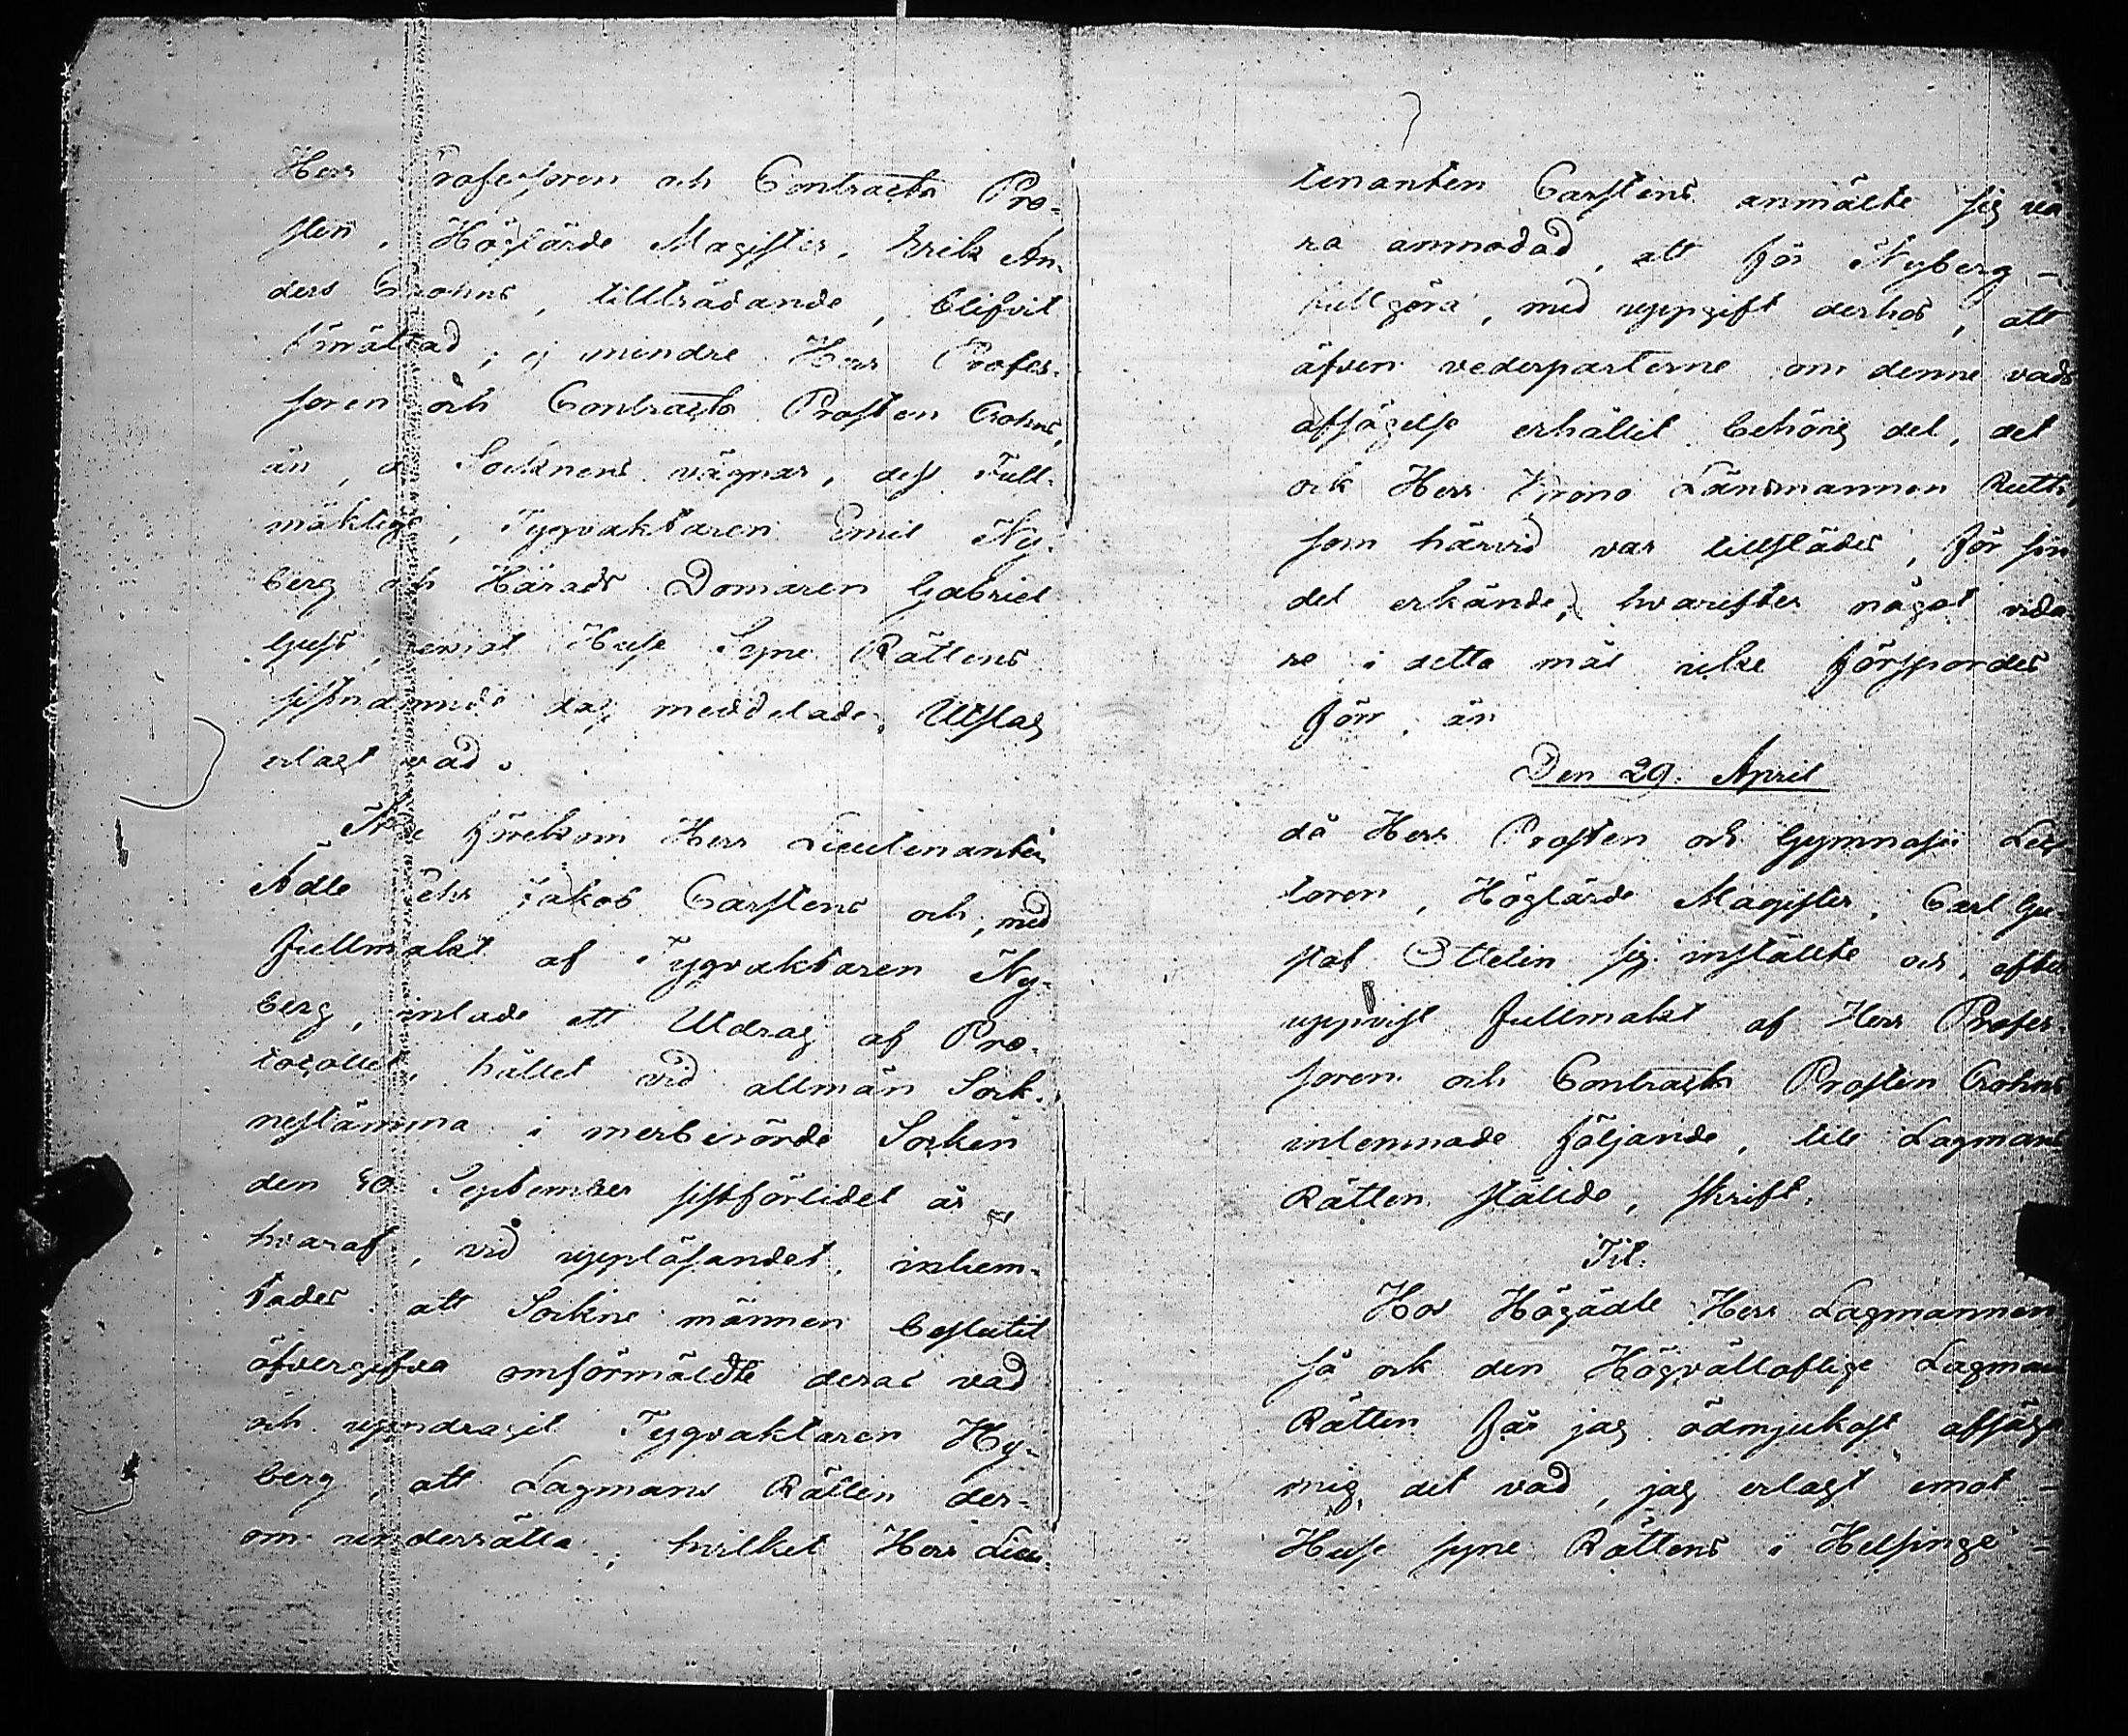 Herr Professoren och Contracts Pro-
sten, Höglärde Magister, Erik An-
ders Crohns, tillträdande, blifvit
förrättad, ej mindre Herr Profes-
soren och Contracts Prosten Crohns,
än, å Socknens vägnar, dess Full-
mäktige, Tygvaktaren Emil Ny-
berg och Härads Domaren Gabriel
emot Huse Syne Rättens
sistnämnde dag meddelade, Utslag
erlagt vad.
Nu förekom Herr Lieutenanten
Ädle Jakob Carstens och, med
fullmakt af Tygvaktaren Ny-
berg, inlade ett Utdrag af Pro-
tocollet, hållet vid allmän Sock-
nestämma i merberörde Socken
den 30 September sistförlidet år,
hvaraf, vid uppläsandet, inhem-
tades att Sockne männen beslutit
öfvergifva omförmäldte deras vad
och uppdragit Tygvaktaren Ny-
berg, att Lagmans Rätten der-
om underrätta; hvilket Herr Lieu-
tenanten Carstens anmälte sig va
ra anmodad, att för Nyberg
fullgöra, med uppgift derhos, att
äfven vederparterne om denne vads
afsägelse erhållit behörig del, det
ock Herr Krono Länsmannen Ruth,
som härvid var tillstädes, för sin
del erkände, hvarefter något vida
re i detta mål icke försports
förr, än
Den 29. April
då Herr Prosten och Gymnasii Lec
toren, Höglärde Magister, Carl Gu-
staf Ottelin sig inställte och, efter
uppvist fullmakt af Herr Profes-
soren och Contracts Prosten Crohns
inlemnade följande, till Lagmans
Rätten ställde, skrift.
Tit.
Hos Högädle Herr Lagmannen
så ock den Högvällofliga Lagmans
Rätten får jag ödmjukast afsäga
mig, det vad, jag erlagt emot
Huse syne Rättens i Helsinge